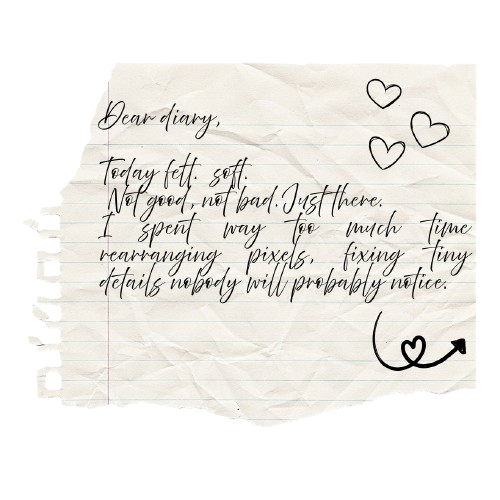 Dear diary,
Today felt. soft.
Not good, not bad. Just there.
I spent way too much time
rearranging pixels, fixing tiny
details nobody will probably notice.